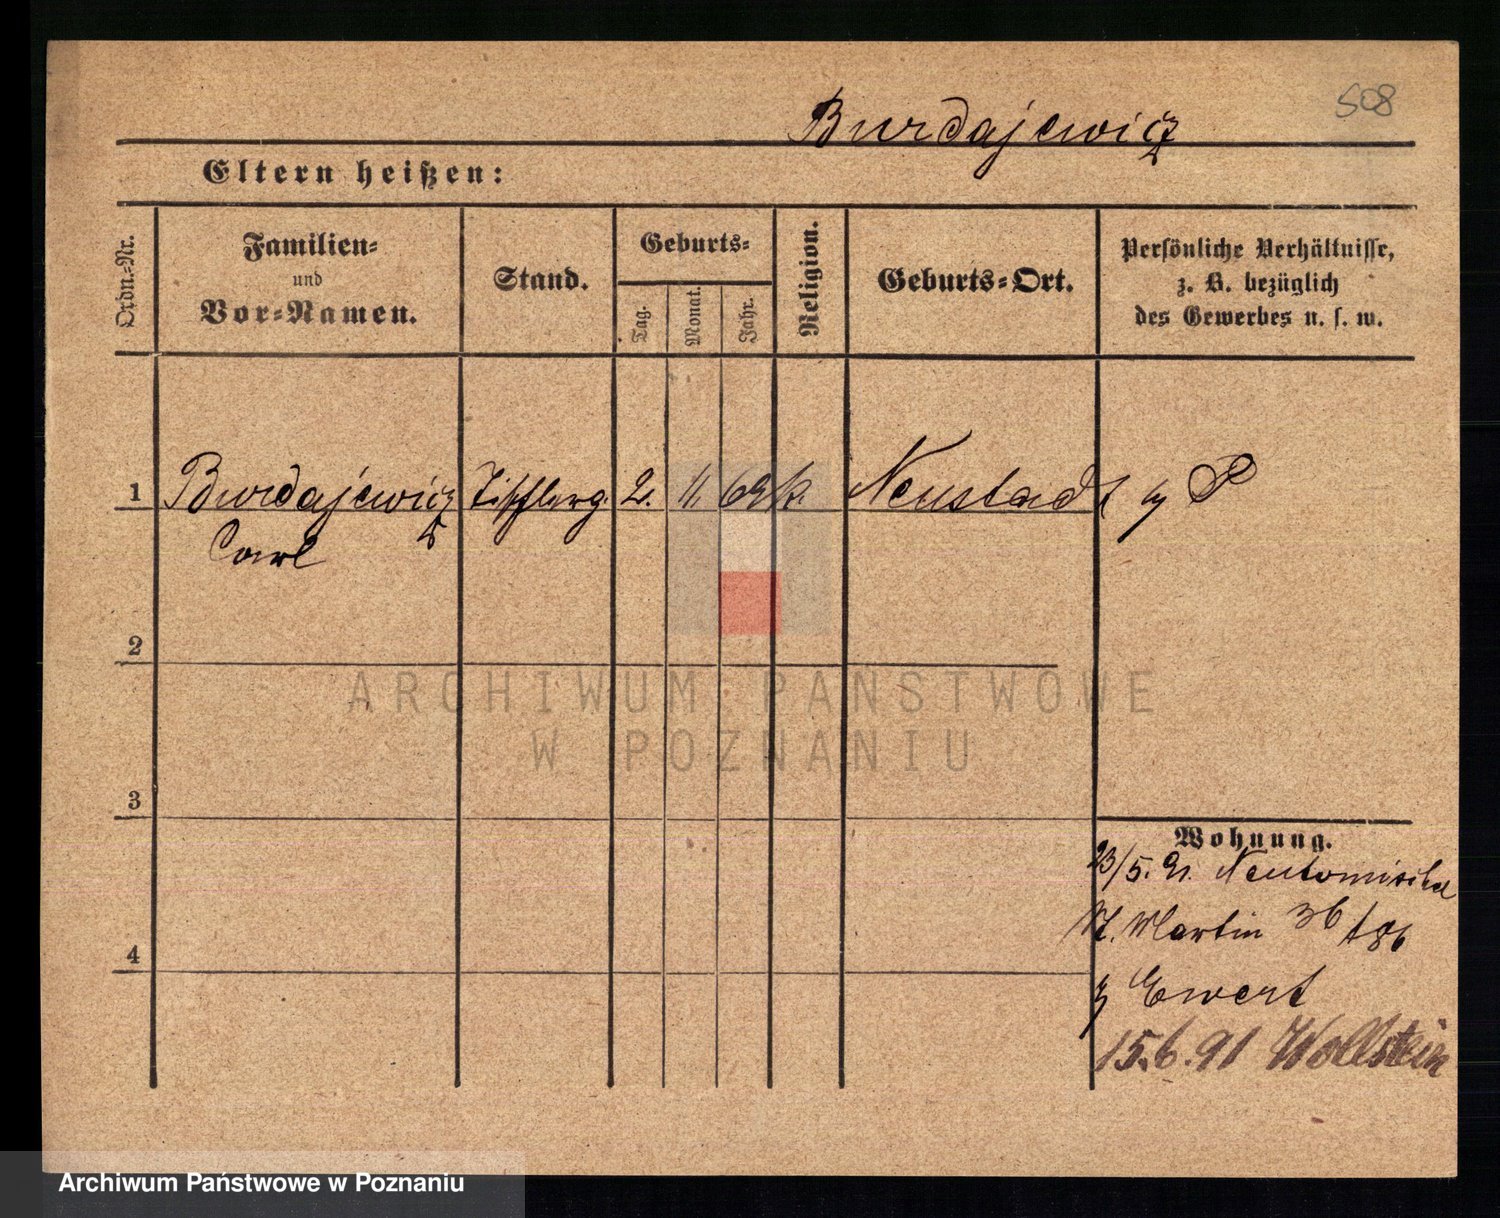 508
Burdajewicz
Eltern heißen:
Ordn.-Nr.
Familien-
und
Vor-Namen.
Stand.
Geburts-
Tag.
Monat.
Jahr.
Religion.
Geburts-Ort.
Persönliche Verhältnisse,
z. B. bezüglich
des Gewerbes u. s. w.
1 Burdajewicz Tischlerg. 2. 11. 69 k. Neustadt a/ P
Carl
2
ARCHIWUM PAŃSTWOWE
W POZNANIU
3
Wohnung.
23/5. 91. Neutomischel
St. Martin 36
4
Ewert
15.6.91 Wollstein
Archiwum Państwowe w Poznaniu